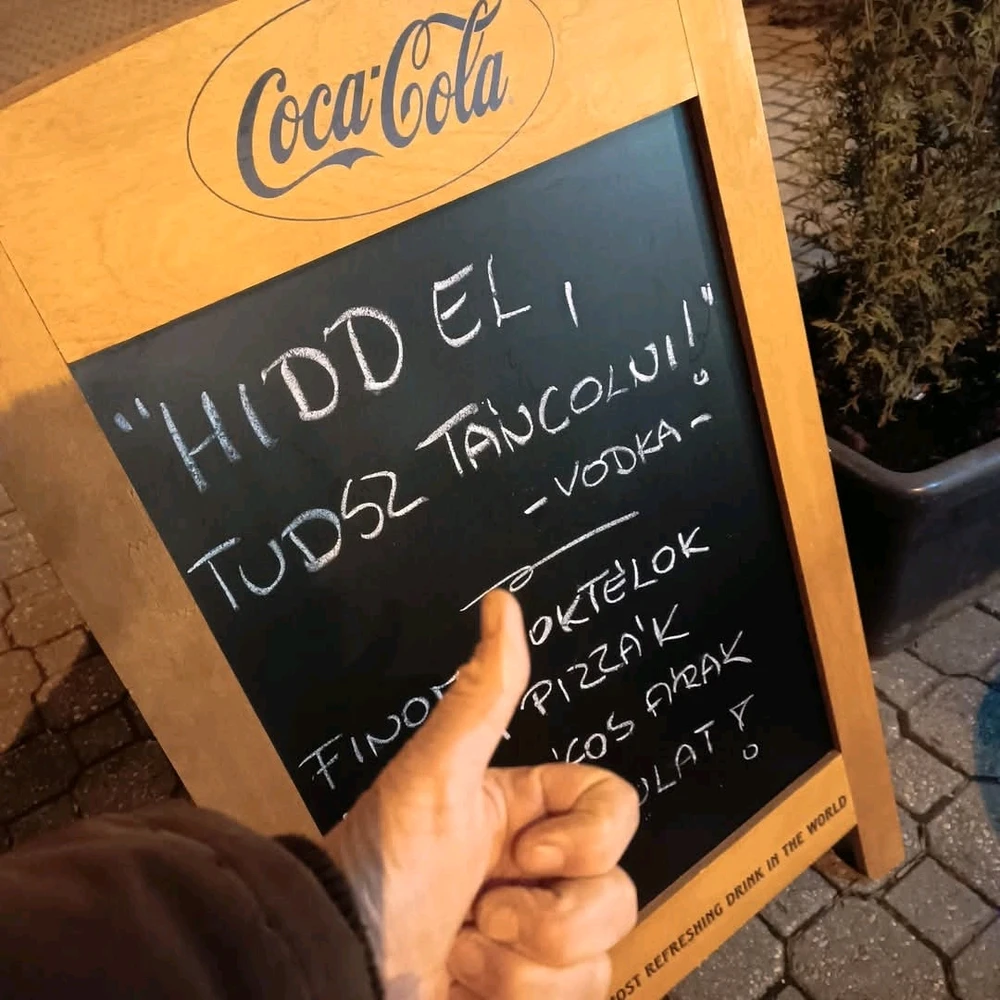 Coca-Cola
"HIDD EL,
TUDSZ TÁNCOLNI!"
- VODKA -
OKTÉLOK
PIZZÁK
ÁRAK
MOST REFRESHING DRINK IN THE WORLD